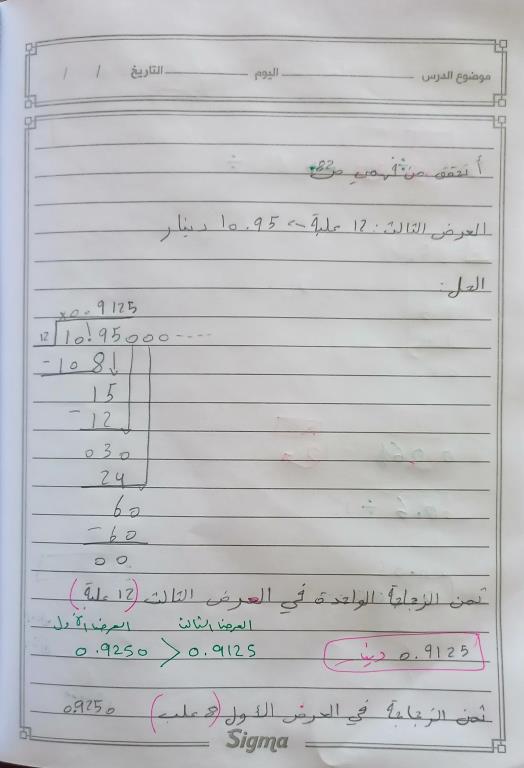 موضوع الدرس اليوم التاريخ / /
أتحقق من فهمي ص 82
العرض الثالث: 12 علبة ← 10.95 دينار
الحل:
x0.9125
12 10.95000....
- 10 8
15
- 12
030
24
60
- 60
00
ثمن الزجاجة الواحدة في العرض الثالث (12 علبة)
العرض الأول العرض الثالث
0.9250 > 0.9125
0.9125 دينار
ثمن الزجاجة في العرض الأول (8 علب) 0.9250
Sigma